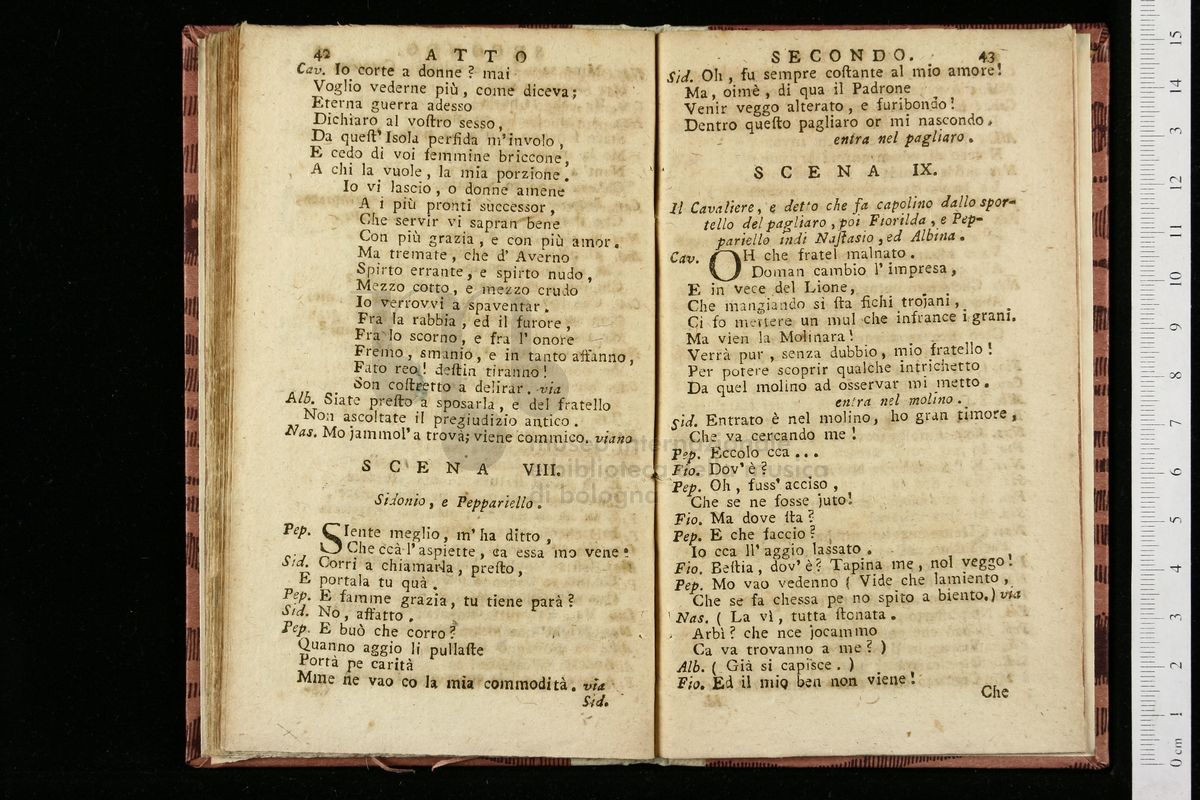 42 ATTO
Cav. Io corte a donne ? mai
Voglio vederne più , come diceva;
Eterna guerra adesso
Dichiaro al voſtro sesso,
Da queſt' Isola perfida m'involo ,
E cedo di voi femmine briccone,
A chi la vuole , la mia porzione.
Io vi lascio , o donne amene
A i più pronti successor ,
Che servir vi sapran bene
Con più grazia , e con più amor.
Ma tremate , che d' Averno
Spirto errante , e spirto nudo ,
Mezzo cotto , e mezzo crudo
Io verrovvi a spaventar.
Fra la rabbia , ed il furore ,
Fra lo scorno , e fra l' onore
Fremo , smanio , e in tanto affanno,
Fato reo ! deſtin tiranno !
Son coſtretto a delirar. via
Alb. Siate preſto a sposarla , e del fratello
Non ascoltate il pregiudizio antico.
Nas. Mo jammol' a trovà; viene commico. viano
SCENA VIII.
Sidonio , e Peppariello.
Pep. SIente meglio, m' ha ditto ,
Che ccà l'aspiette , ca essa mo vene!
Sid. Corri a chiamarla, preſto,
E portala tu quà.
Pep. E famme grazia, tu tiene parà ?
Sid. No , affatto .
Pep. E buò che corro ?
Quanno aggio li pullaſte
Portà pe carità
Mme ne vao co la mia commodità. via
Sid.
SECONDO. 43
Sid. Oh , fu sempre coſtante al mio amore!
Ma, oimè , di qua il Padrone
Venir veggo alterato , e furibondo !
Dentro queſto pagliaro or mi nascondo.
entra nel pagliaro .
SCENA IX.
Il Cavaliere, e detto che fa capolino dallo spor-
tello del pagliaro , poi Fiorilda , e Pep-
pariello indi Naſtasio , ed Albina .
Cav. OH che fratel malnato .
Doman cambio l' impresa ,
E in vece del Lione,
Che mangiando si ſta fichi trojani ,
Ci fo mettere un mul che infrance i grani.
Ma vien la Molinara !
Verrà pur , senza dubbio, mio fratello !
Per potere scoprir qualche intrichetto
Da quel molino ad osservar mi metto .
entra nel molino .
Sid. Entrato è nel molino, ho gran timore ,
Che va cercando me !
Pep. Eccolo cca ...
Fio. Dov' è ?
Pep. Oh , fuss' acciso ,
Che se ne fosse juto!
Fio. Ma dove ſta ?
Pep. E che faccio ?
Io cca ll' aggio lassato .
Fio. Beſtia , dov' è ? Tapina me , nol veggo !
Pep. Mo vao vedenno ( Vide che lamiento ,
Che se fa chessa pe no spito a biento.) via
Nas. ( La vì , tutta ſtonata .
Arbì ? che nce jocammo
Ca va trovanno a me ? )
Alb. ( Già si capisce . )
Fio. Ed il mio ben non viene !
Che
museo internazionale
biblioteca della musica
di bologna
0 cm 1 2 3 4 5 6 7 8 9 10 11 12 13 14 15